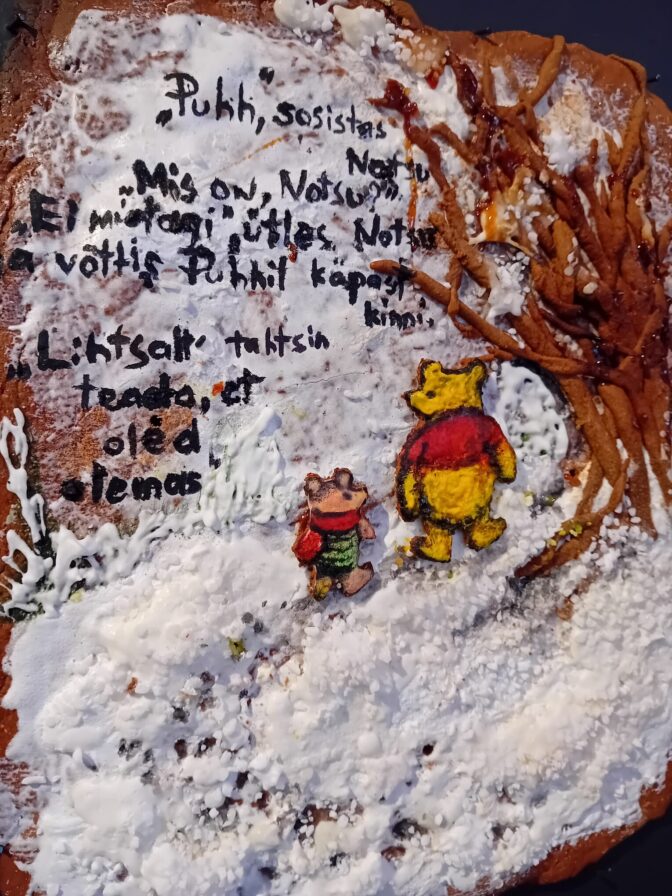 „Puhh,” sosistas
Notsu
„Mis on, Notsu?”
„Ei midagi” ütles Notsu
ja võttis Puhhil käpast
kinni.
„Lihtsalt tahtsin
teada, et
oled
olemas